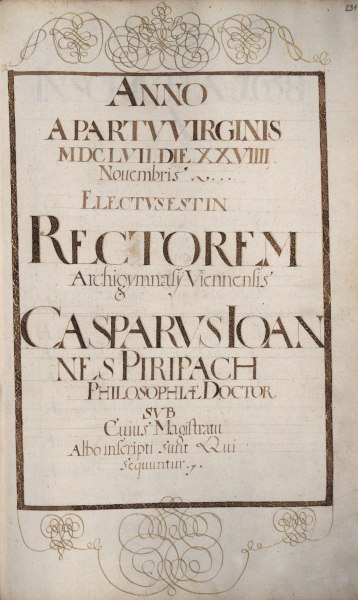 231
ANNO
A PARTV VIRGINIS
MDCLVII. DIE XXVIIII
Nouembris
ELECTVS EST IN
RECTOREM
Archigymnasÿ Viennensis
CASPARVS IOAN
NES PIRIPACH
PHILOSOPHIÆ DOCTOR
SVB
Cuius Magistratu
Albo inscripti sunt Qui
sequuntur.